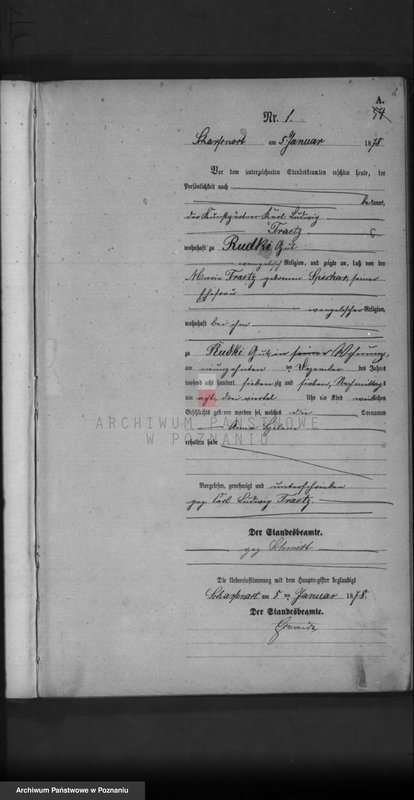 A.
Nr. 1.
Scharfenort am 5 Januar 1878
Vor dem unterzeichneten Standesbeamten erschien heute, der
Persönlichkeit nach
bekannt,
der Kunstgärtner Karl Ludwig
Traetz
wohnhaft zu Rudki Gut
evangelisch Religion, und zeigte an, daß von der
Maria Traetz geborenen seiner
Ehefrau
evangelischer Religion,
wohnhaft bei ihm
zu Rudki Gut in seiner Wohnung,
am neunzehnten ten Dezember des Jahres
tausend acht hundert siebenzig und sieben, Nachmittags
um acht drei viertel Uhr ein Kind weiblichen
Geschlechts geboren worden sei, welches die Vornamen
Anna Helene
erhalten habe
ARCHIWUM PAŃSTWOWE
W POZNANIU
Vorgelesen, genehmigt und unterschrieben
gez Carl Ludwig Traetz.
Der Standesbeamte.
gez Schmidt
Die Uebereinstimmung mit dem Hauptregister beglaubigt
Scharfenort am 5 ten Januar 1878.
Der Standesbeamte.
Archiwum Państwowe w Poznaniu